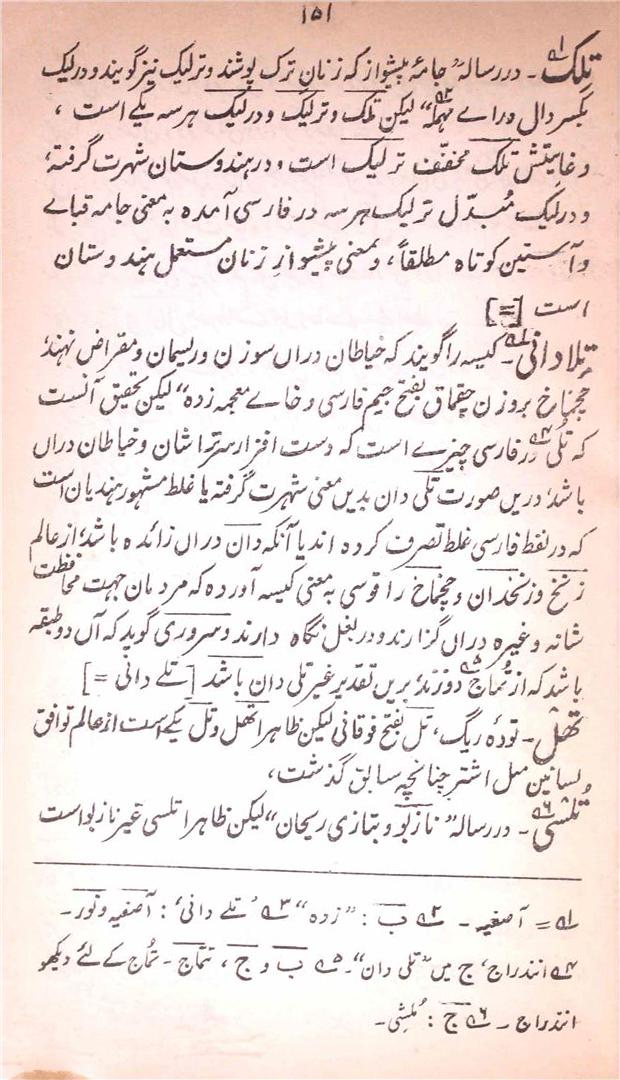 ۱۵۱
تِلَک ۱ـ ۔ در رسالہ ” جامۂ پیشواز کہ زنانِ ترک پوشند و ترلیک نیز گویند و درلیک
بکسر دال و راے مہملہ ۲ـ “ لیکن تلک و ترلیک و درلیک ہر سہ یکے است ،
و غایتش تلک مخفف ترلیک است و در ہندوستان شہرت گرفتہ،
و درلیک مُبدّل ترلیک ہر سہ در فارسی آمدہ بہ معنی جامہ قباے
و آستین کوتاہ مطلقاً، و بمعنی پیشواز زنان مستعمل ہندوستان
است [=]
تِلادانی ۳ـ ۔ کیسہ را گویند کہ خیاطان دراں سوزن و ریسمان و مقراض نہند،
چچماخ بروزن چقماق بفتح جیم فارسی و خاے معجمہ زدہ “ لیکن تحقیق آنست
کہ تُلی ۴ـ در فارسی چیزے است کہ دست افزار سرتراشان و خیاطان دراں
باشد، دریں صورت تلی دان بدیں معنی شہرت گرفتہ یا غلط مشہور ہندیان است
کہ در لفظ فارسی غلط تصرف کردہ اند یا آنکہ دان دراں زائدہ باشد، از عالم
زنخ و زنخدان و چچماخ را قوسی بہ معنی کیسہ آوردہ کہ مردمان جہت محافظت
شانہ و غیرہ دراں گزارند و در بغل نگاہ دارند و سروری گوید کہ آں دو طبقہ
باشد کہ از تُماج ۵ـ دوزند، بریں تقدیر غیر تلی دان باشد [تلے دانی =]
تھل ۔ تودہ ریگ، تل بفتح فوقانی لیکن ظاہرا تھل و تل یکے است از عالم توافق
لسانین مل اشتر چنانچہ سابق گذشت،
تُلسی ۶ـ ۔ در رسالہ ” نازبو و بتازی ریحان “ لیکن ظاہرا تلسی غیر نازبو است
۱ـ = آصفیہ ۔ ۲ـ ب : ” زدہ “ ۳ـ ’تلے دانی‘ : آصفیہ و نور ۔
۴ـ انندراج، ج میں ” تلی دان “ ۔ ۵ـ ب و ج ، تتماج ۔ تُماج کے لئے دیکھو
انندراج ۔ ۶ـ ج : مُلشِی ۔